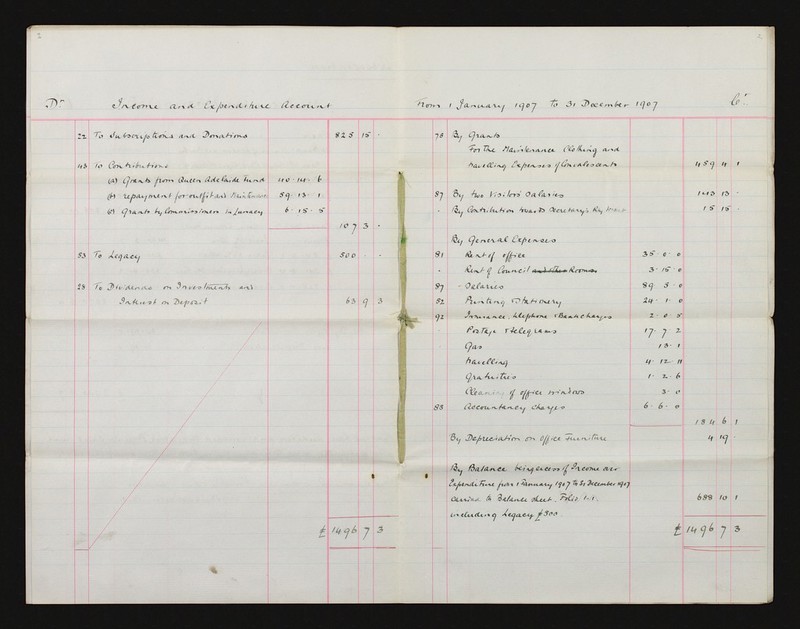 2
2
Dr Income and Expenditure Account From 1 January 1907 to 31 December 1907 Cr
22 To Subscriptions and Donations 825 15 -
48 To Contributions
(a) Grants from Queen Adelaide Fund 40 . 14 . 6
(b) repayment for outfit and Maintenance 59 . 13 . 1
(c) Grants by Commissioners in Lunacy 6 . 15 . 5
107 3 -
53 To Legacy 500 - -
28 To Dividends on Investments and
Interest on Deposit 63 9 3
£ 1496 7 3
78 By Grants
For the Maintenance Clothing and
travelling Expenses of Convalescents 459 4 1
87 By two Visitors' Salaries 143 13 -
- By Contribution towards Secretary's 15 15 -
By General Expenses
81 Rent of office 35 . 0 . 0
- Rent of Council and other Rooms 3 . 15 . 0
87 - Salaries 89 . 5 . 0
82 Printing & Stationery 24 . 1 . 0
92 Insurance, telephone & Bank charges 2 . 0 . 5
Postage & telegrams 17 . 7 . 2
Gas 13 . 1
travelling 4 . 12 . 11
Gratuities 1 . 2 . 6
Cleaning of office windows 3 . 0
88 Accountancy charges 6 . 6 . 0
184 6 1
By Depreciation on office Furniture 4 19 -
By Balance being excess of Income over
Expenditure from 1 January 1907 to 31 December 1907
carried to Balance sheet. Folio 1 688 10 1
including Legacy £500
£ 1496 7 3